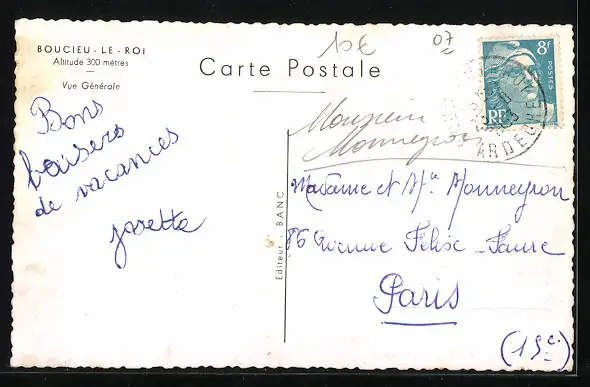 BOUCIEU - LE - ROI
Altitude 300 mètres
Vue Générale
10€
07
Carte Postale
8f
POSTES
RF
ARDECHE
Bons
baisers
de vacances
Josette
Editeur : BANC
Monsieur
Monneyron
Madame et Mr Monneyron
86 Avenue Felix - Faure
Paris
(15e.)